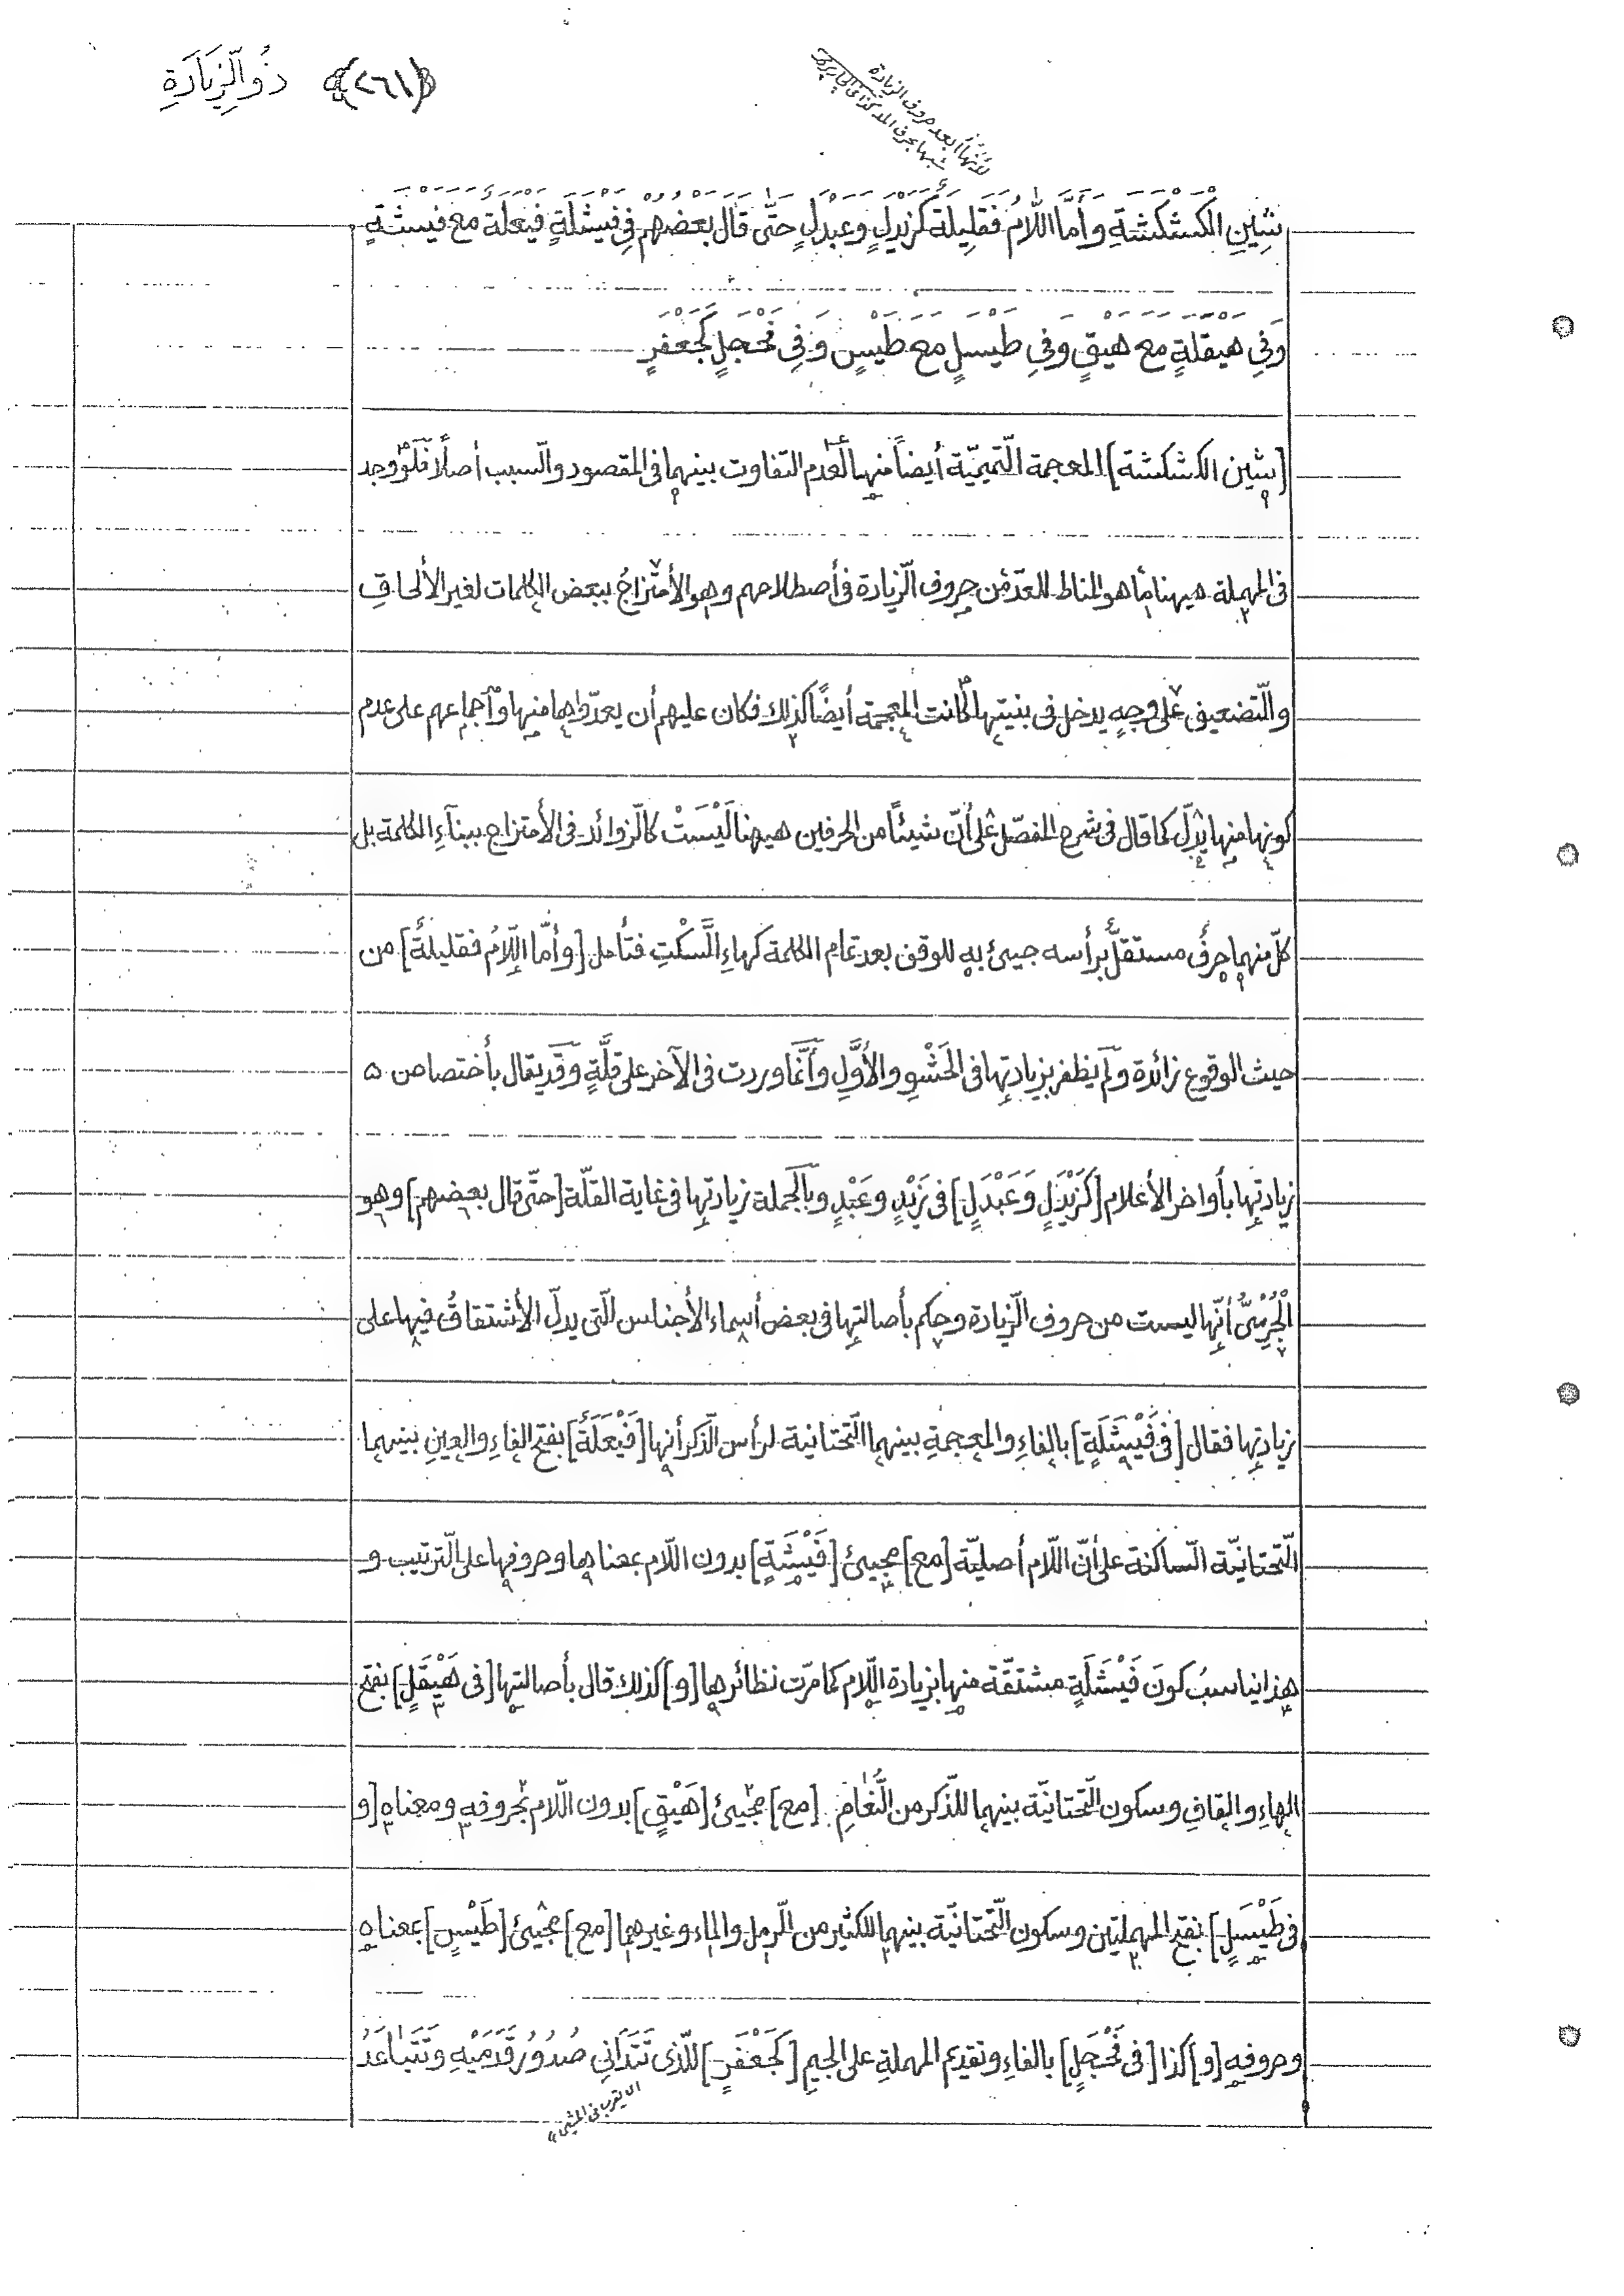 ذُو الزِّيَادَةِ ﴿٢٦١﴾
لأنّها أبعد حروف الزيادة
شبها بحرف المد كذا فى الجاربردى
شِينِ الْكَشْكَشَةِ وَأَمَّا اللَّامُ فَقَلِيلَةٌ كَزَيْدَلٍ وَعَبْدَلٍ حَتّٰى قَالَ بَعْضُهُمْ فِي فَيْشَلَةٍ فَيْعَلَةٌ مَعَ فَيْشَةٍ
وَفِي هَيْقَلَةٍ مَعَ هَيْقٍ وَفِي طَيْسَلٍ مَعَ طَيْسٍ وَفِي فَحْجَلٍ كَجَعْفَرٍ
[شين الكشكشة] المعجمة التّميميّة أيضاً منها لعدم التفاوت بينهما فى المقصود والسّبب أصلًا فلو وجد
فى المهملة هيهنا ما هو المناط للعدّ من حروف الزّيادة فى أصطلاحهم وهو الأمتزاجُ ببعض الكلمات لغير الألحاقِ
والتّضعيف على وجهٍ يدخل فى بنيتها لكانت المعجمة أيضًا كذلك فكان عليهم أن يعدّوهما منها وأجماعهم على عدم
كونها منها يدلّ كما قال فى شرح المفصّل على أنّ شيئًا من الحرفين هيهنا لَيْسَتْ كالزّوائد فى الأمتزاج ببنآءِ الكلمة بل
كلّ منهما حرفٌ مستقلٌّ برأسه جيئ به للوقف بعد تمام الكلمة كهاءِ السَّكْتِ فتأمل [وأمّا اللّامُ فقليلةٌ] من
حيث الوقوع زائدة ولم يظفر بزيادتها فى الحَشْوِ والأوَّلِ وأنّما وردت فى الآخر على قلَّةٍ وقد يقال بأختصاص ٥
زيادتها بأواخر الأعلام [كَزَيْدَلٍ وَعَبْدَلٍ] فى زَيْدٍ وعَبْدٍ وبالجملة زيادتها فى غاية القلّة [حتّى قال بعضهم] وهو
الْجَرْمِىُّ أنّها ليست من حروف الزّيادة وحكم بأصالتها فى بعض أسماء الأجناس الّتى يدلّ الأشتقاقُ فيها على
زيادتها فقال [فى فَيْشَلَةٍ] بالفاءِ والمعجمةِ بينهما التّحتانية لرأس الذّكر أنها [فَيْعَلَةٌ] بفتح الفاءِ والعينِ بينهما
التّحتانيّة السّاكنة على أنّ اللّام أصليّة [مع] مجيئ [فَيْشَةٍ] بدون اللّام بمعناها وحروفها على التّرتيب و
هذا يناسبُ كونَ فَيْشَلَةٍ مشتقّة منها بزيادة اللّام كما مرّت نظائرها [و] كذلك قال بأصالتها [فى هَيْقَلٍ] بفتح
الهاءِ والقافِ وسكون التّحتانيّة بينهما للذّكر من النُّعَامِ [مع] مجيئ [هَيْقٍ] بدون اللّام بحروفه ومعناه [و
فى طَيْسَلٍ] بفتح المهملتين وسكون التّحتانيّة بينهما للكثير من الرّمل والماء وغيرهما [مع] مجيئ [طَيْسٍ] بمعناه
وحروفه [و] كذا [فى فَحْجَلٍ] بالفاءِ وتقديم المهملةِ على الجيمِ [كَجَعْفَرٍ] للّذى تَتَدَانِى صُدُورُ قَدَمَيْهِ وَتَتَبَاعَدُ
اى يقرب فى المشى